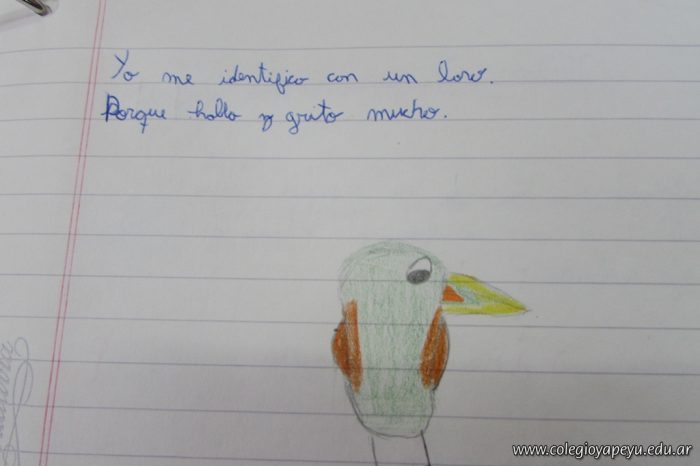 Yo me identifico con un loro.
Porque hablo y grito mucho.
www.colegioyapeyu.edu.ar